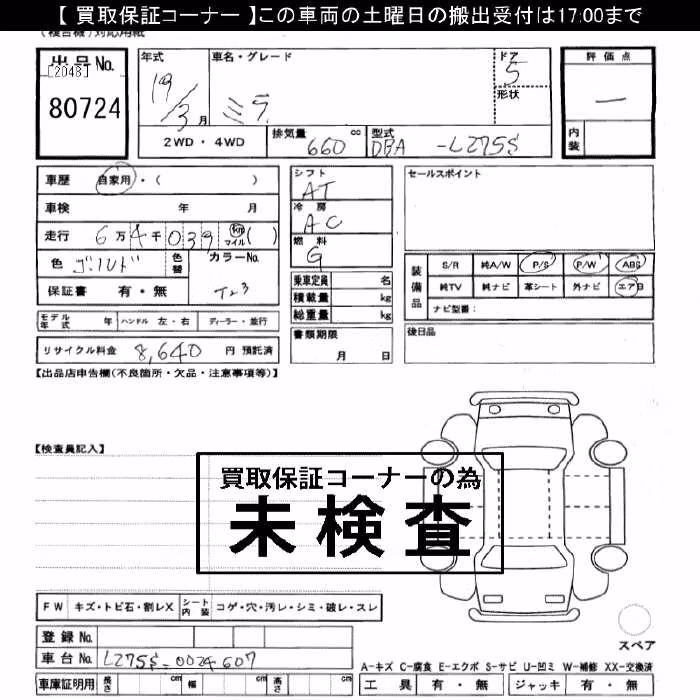 【 買取保証コーナー 】この車両の土曜日の搬出受付は17:00まで
(複合機)対応用紙
出品No.
[2048]
80724
年式
19/3月
車名・グレード
ミラ
ドア
5
形状
評価点
—
内装
2WD・4WD
排気量
660 cc
型式
DBA -L275S
車歴 自家用・( )
車検 年 月
走行 6万4千039 km マイル ( )
色 ゴールド 色替 カラーNo.
保証書 有・無 T23
モデル年式 年 ハンドル 左・右 ディーラー・並行
リサイクル料金 8,640 円 預託済
シフト
AT
冷房
AC
燃料
G
乗車定員 名
積載量 kg
総重量 kg
書類期限
月 日
セールスポイント
装備品
S/R 純A/W P/S P/W ABS
純TV 純ナビ 革シート 外ナビ エアB
ナビ型番:
後日品
【出品店申告欄(不良箇所・欠品・注意事項等)】
【検査員記入】
買取保証コーナーの為
未検査
FW キズ・トビ石・割レX シート内装 コゲ・穴・汚レ・シミ・破レ・スレ
登録No.
車台No. L275S-0024607
車庫証明用 長さ cm 幅 cm 高さ cm
スペア
A-キズ C-腐食 E-エクボ S-サビ U-凹ミ W-補修 XX-交換済
工具 有・無 ジャッキ 有・無